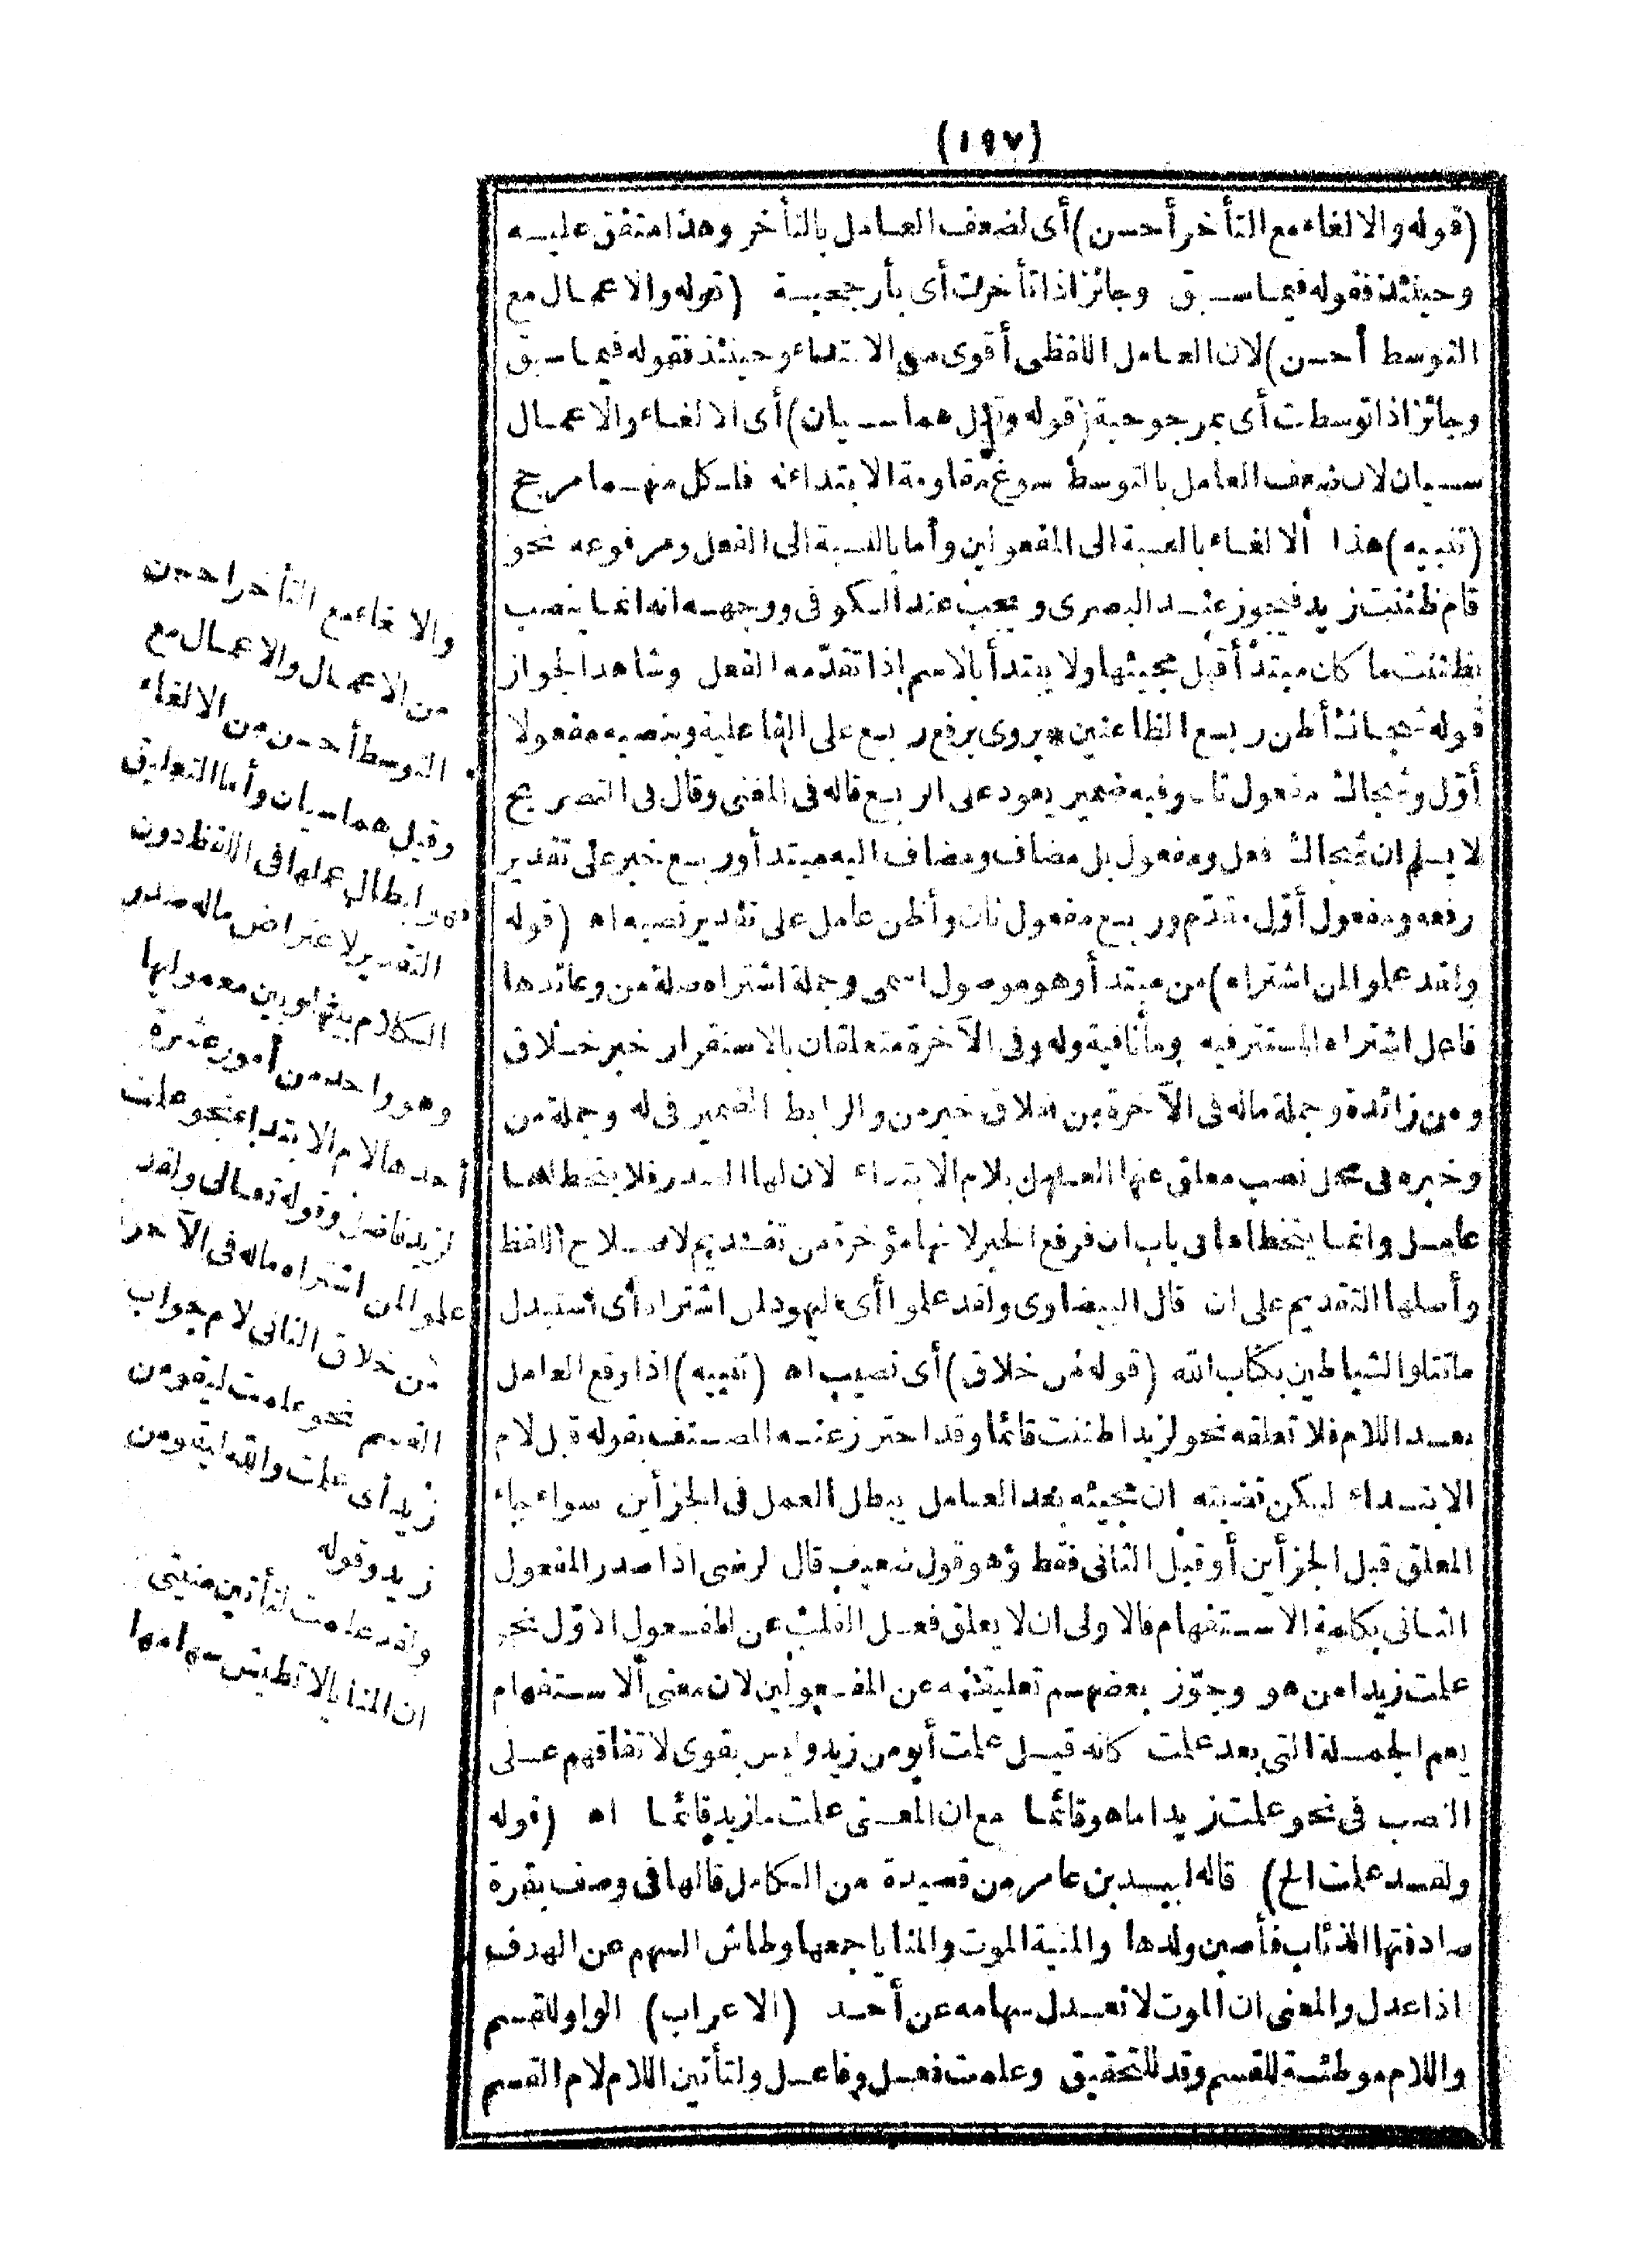 (١٩٧)
(قوله والالغاء مع التأخر أحسن) أى لضعف العامل بالتأخر وهذا متفق عليه
وحينئذ فقوله فيما سبق وجائز اذا تأخرت أى بأرجحية (قوله والاعمال مع
التوسط أحسن) لان العامل اللفظى أقوى من الابتداء وحينئذ فقوله فيما سبق
وجائز اذا توسطت أى بمرجوحية (قوله وقيل هما سيان) أى الالغاء والاعمال
سيان لان ضعف العامل بالتوسط سوغ مقاومة الابتداء له فلكل منهما مرجح
(تنبيه) هذا الالغاء بالنسبة الى المفعولين وأما بالنسبة الى الفعل ومرفوعه نحو
قام ظننت زيد فيجوز عند البصرى ويجب عند الكوفى ووجهه انه انما ينصب
بظننت ما كان مبتدأ قبل مجيئها ولا يبتدأ بالاسم إذا تقدّمه الفعل وشاهد الجواز
قوله شجاك أظن ربع الظاعنين * يروى برفع ربع على الفاعلية وبنصبه مفعولا
أوّل وشجاك مفعول ثان وفيه ضمير يعود على الربع قاله فى المغنى وقال فى التصريح
لا يسلم ان شجاك فعل ومفعول بل مضاف ومضاف اليه مبتدأ وربع خبر على تقدير
رفعه ومفعول أوّل مقدّم وربع مفعول ثان وأظن عامل على تقدير نصبه اه (قوله
ولقد علموا لمن اشتراه) من مبتدأ وهو موصول اسمى وجملة اشتراه صلة من وعائدها
فاعل اشتراه المستتر فيه وما نافية وله وفى الآخرة متعلقان بالاستقرار خبر خلاق
ومن زائدة وجملة ماله فى الآخرة من خلاق خبر من والرابط الضمير فى له وجملة من
وخبره فى محل نصب معلق عنها العامل بلام الابتداء لان لها الصدر فلا يتخطاها
عامل وانما يتخطاها فى باب ان فرفع الخبر لانها مؤخرة من تقديم لاصلاح اللفظ
وأصلها التقديم على ان قال البيضاوى ولقد علموا أى اليهود لمن اشتراه أى استبدل
ما تتلوا الشياطين بكتاب الله (قوله من خلاق) أى نصيب اه (تنبيه) اذا رفع العامل
بعد اللام فلا تعلقه نحو لزيدا ظننت قائما وقد احترز عنه المصنف بقوله قبل لام
الابتداء لكن قضيته ان مجيئه بعد العامل يبطل العمل فى الجزأين سواء جاء
المعلق قبل الجزأين أو قبل الثانى فقط وهو قول ضعيف قال الرضى اذا صدر المفعول
الثانى بكلمة الاستفهام فالاولى ان لا يعلق فعل القلب عن المفعول الاوّل نحو
علمت زيدا من هو وجوّز بعضهم تعليقه عن المفعولين لان معنى الاستفهام
يعم الجملة التى بعد علمت كانه قيل علمت أبو من زيد وليس بقوى لاتفاقهم على
النصب فى نحو علمت زيدا ما هو قائما مع ان المعنى علمت ما زيد قائما اه (قوله
ولقد علمت الخ) قاله لبيد بن عامر من قصيدة من الكامل قالها فى وصف بقرة
صادفتها الذئاب فأصبن ولدها والمنية الموت والمنايا جمعها وطاش السهم عن الهدف
اذا عدل والمعنى ان الموت لا تعدل سهامه عن أحد (الاعراب) الواو للقسم
واللام موطئة للقسم وقد للتحقيق وعلمت فعل وفاعل ولتأتين اللام لام القسم
والالغاء مع التأخر احسن
من الاعمال والاعمال مع
التوسط أحسن من الالغاء
وقيل هما سيان وأما التعليق
فهو ابطال عملها فى اللفظ دون
التقدير لاعتراض ماله صدر
الكلام بينها وبين معموليها
وهو واحد من أمور عشرة
أحدها لام الابتداء نحو علمت
لزيد فاضل وقوله تعالى ولقد
علموا لمن اشتراه ماله فى الآخرة
من خلاق الثانى لام جواب
القسم نحو علمت ليقومن
زيد أى علمت والله ليقومن
زيد وقوله
ولقد علمت لتأتين منيتى
ان المنايا لا تطيش سهامها